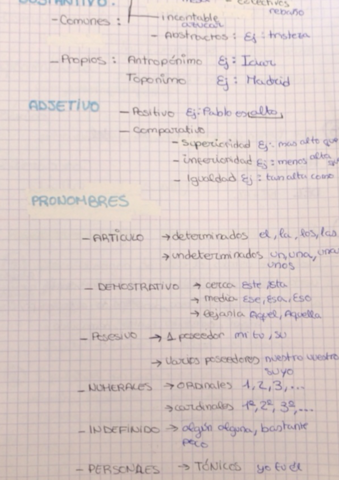 SUSTANTIVO:
colectivos
- Comunes : incontable rebaño
azucar
- Abstractos : Ej : tristeza
- Propios : Antropónimo Ej : Icíar
Toponimo Ej : Madrid
ADJETIVO - Positivo Ej: Pablo es alto,
- Comparativo
- Superioridad Ej : mas alto que
- inferioridad Ej : menos alto
- Igualdad Ej : tan alto como
PRONOMBRES
- ARTICULO → determinados el, la, los, las
→ undeterminados un, una, unas
unos
- DEMOSTRATIVO → cerca Este, Esta
→ media Ese, Esa, Eso
→ lejania Aquel, Aquella
- POSESIVO → 1 poseedor mi tu, su
→ Varios poseedores nuestro vuestro
suyo
- NUMERALES → ORDinales 1, 2, 3, ...
→ cardinales 1º, 2º, 3º, ...
- INDEFINIDO → algún alguna, bastante
poco
- PERSONALES → TÓNICOS yo tu él